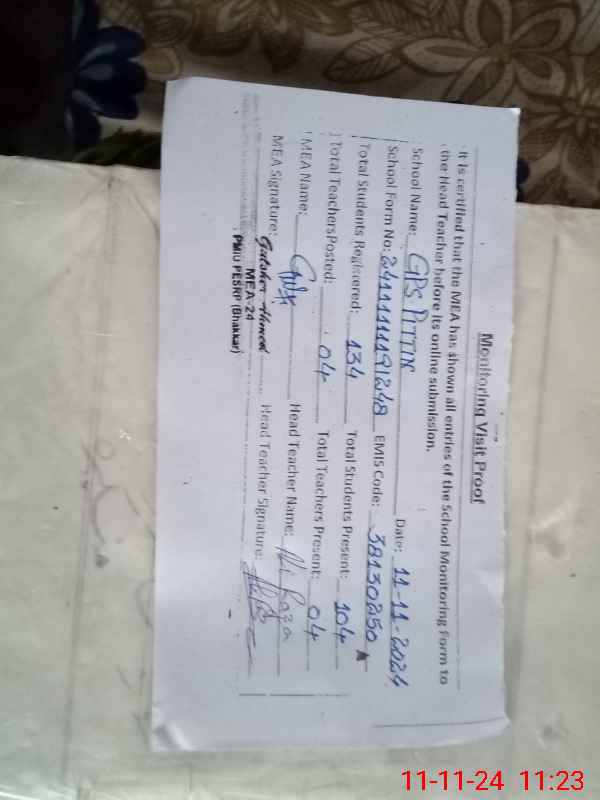 Monitoring Visit Proof
It is certified that the MEA has shown all entries of the School Monitoring Form to
the Head Teacher before its online submission.
School Name: GPS PITTIN Date: 11-11-2024
School Form No: 24111111191248 EMIS Code: 38130250
Total Students Registered: 134 Total Students Present: 104
Total Teachers Posted: 04 Total Teachers Present: 04
MEA Name: Head Teacher Name: Ali Raza
MEA Signature: Gulsher Ahmed Head Teacher Signature:
MEA-24
PMIU PESRP (Bhakkar)
11-11-24 11:23